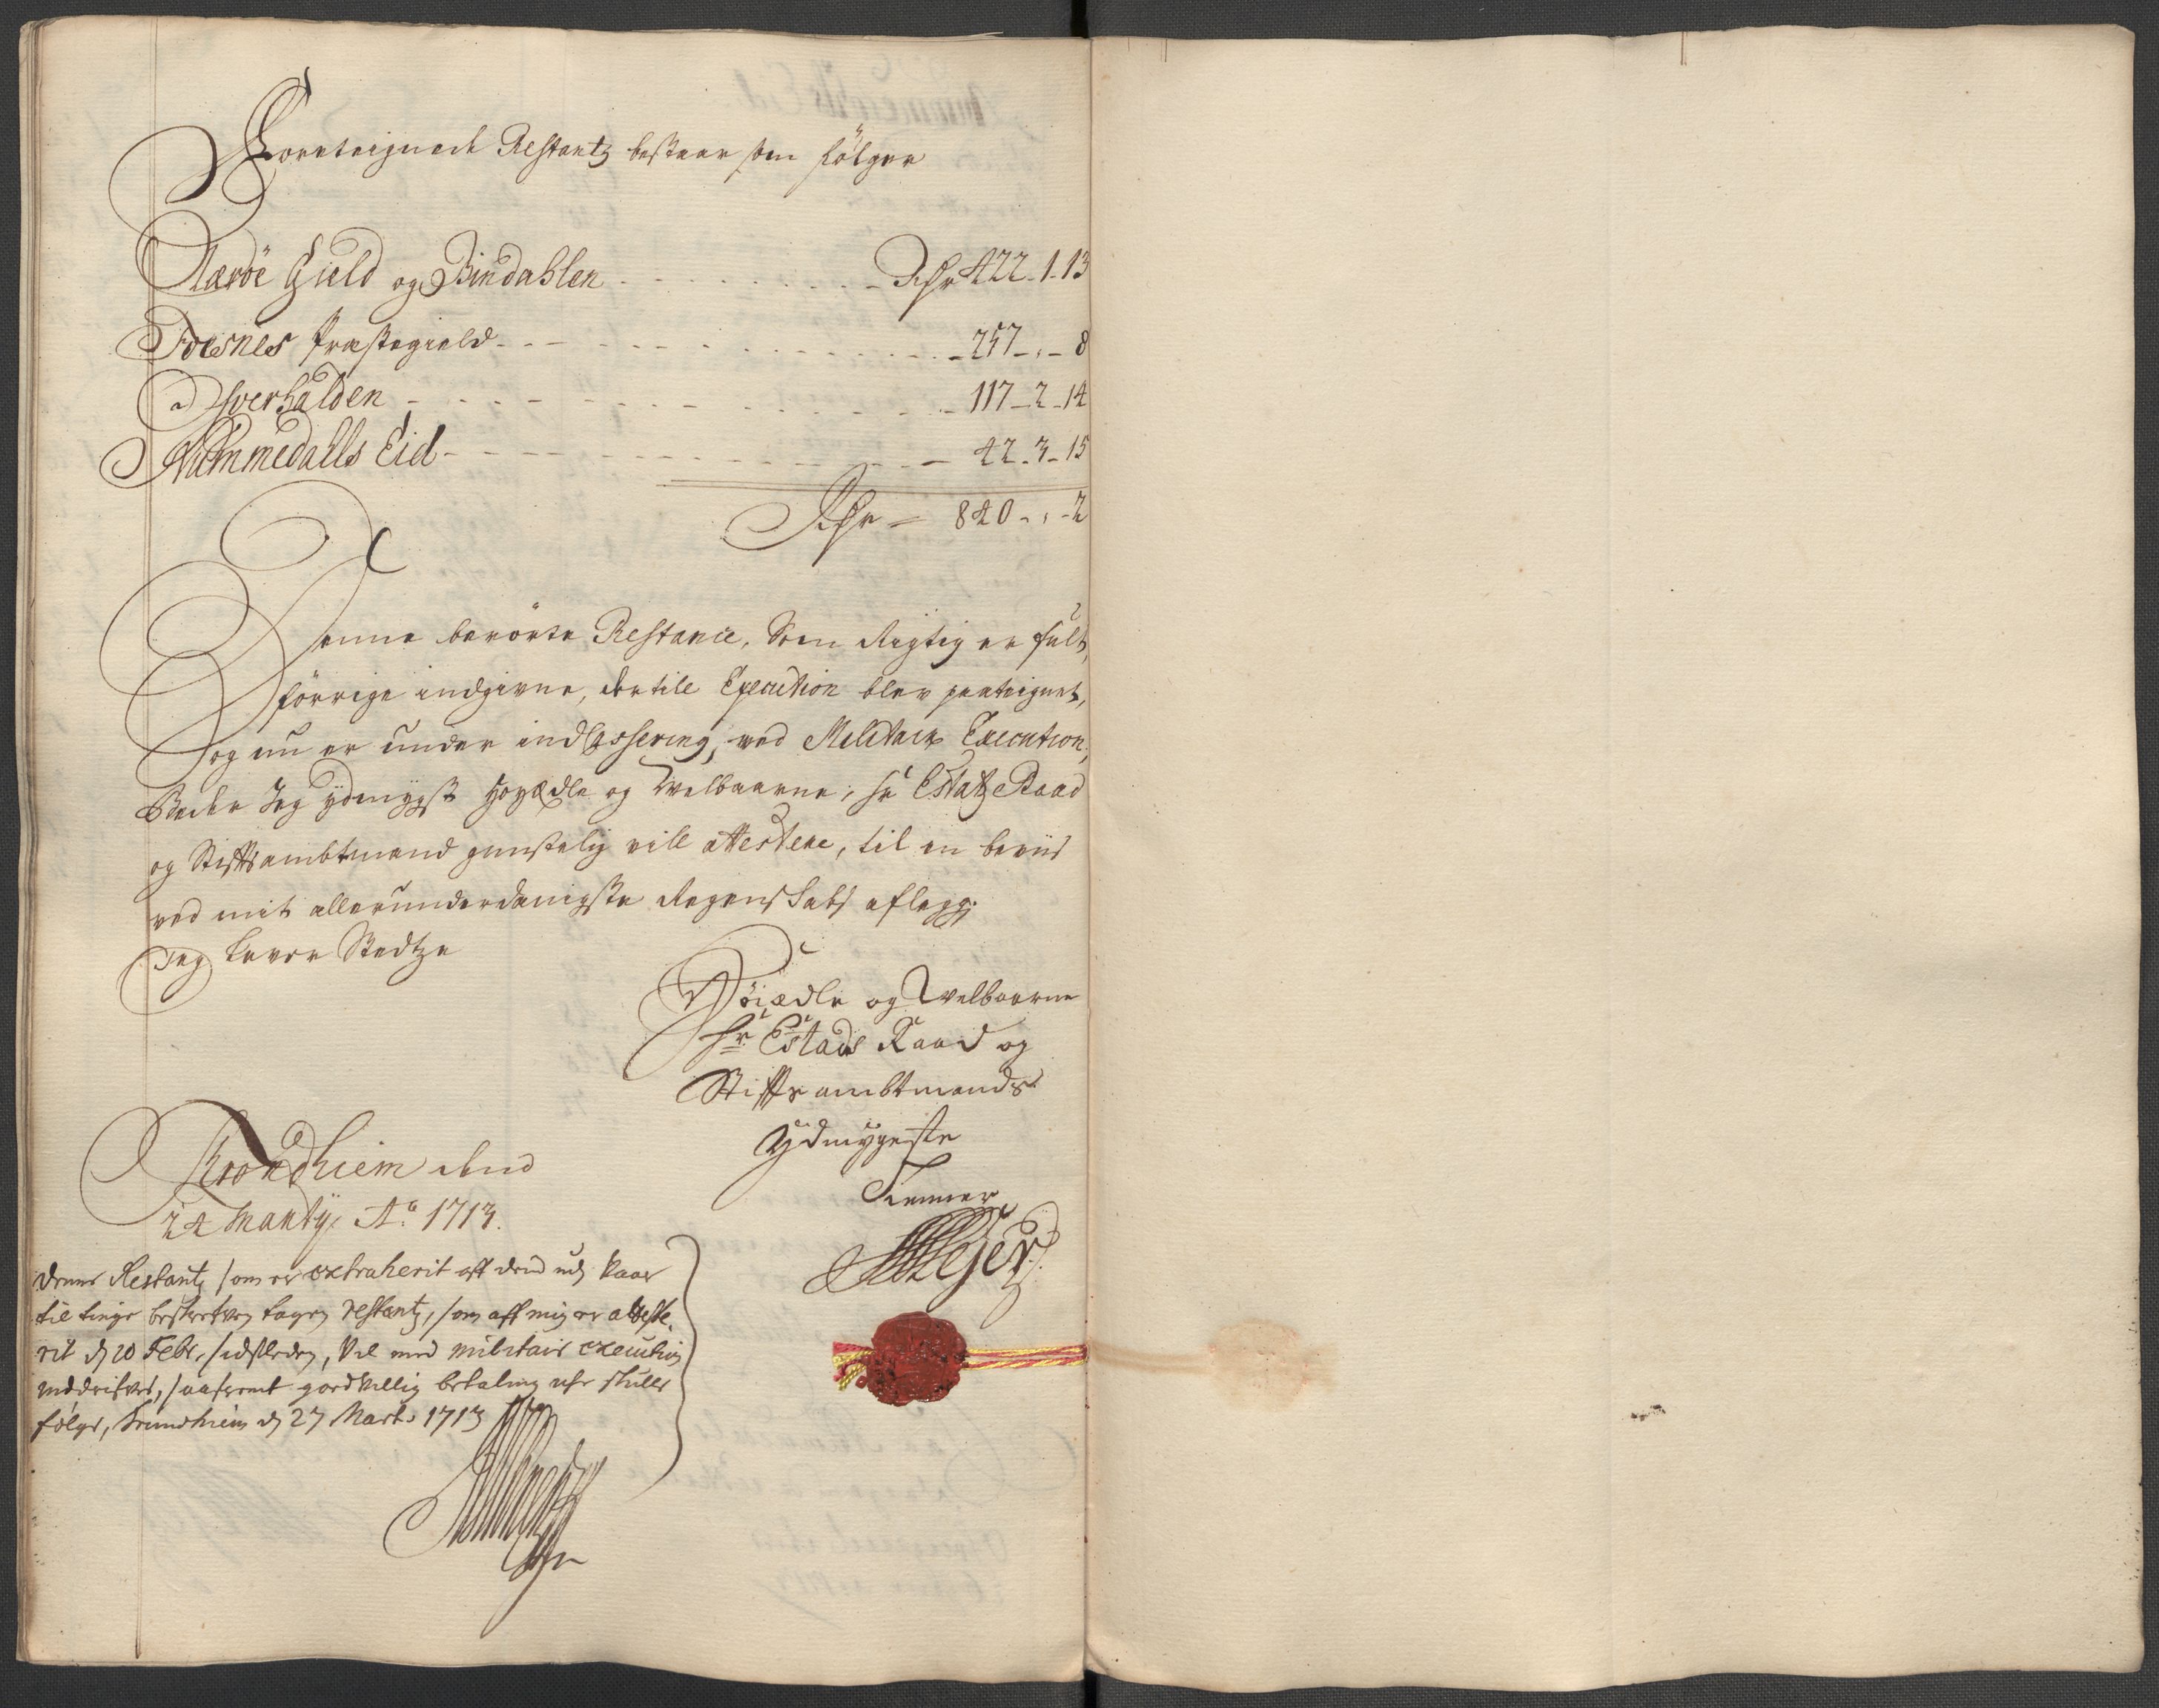 Foreteignede Restantz bestaar som følger
Nærøe Gield og Bindahlen - - - Rdr 422 - 1 - 13
Foesnes Præstegield - - - 257 - , - 8
Overhalden - - - 117 - 2 - 14
Nummedalls Eid - - - 42 - 3 - 15
Rdr - 840 - , - 2
Denne berørte Restance, Som Rigtig er
förrige indgivne, der till Execution blev paateignet,
og nu er under indCassering, ved Militair Execution,
Beder Jeg ydmygst HoyÆdle og Welbaarne, Hr Estatz Raad
og Stiftsambtmand gunstelig vill attestere, til en beviis
ved mit allerunderdanigste Regenskabs aflegg.
Jeg lever Stedtze
Höiædle og Welbaarne
Hr. Estads Raad og
Stiftsambtmands
Ydmygeste
Tienner
Trondhiem dend
24 Marty Ao 1713.
Denne Restantz som er extraherit aff dend udj
til tinge beskrefven tagen restantz, som aff mig er atteste-
rit d 20 Febr. sidstleden, Vel med militair execution
inddrifves, saafremt goedvillig betaling ej skulle
følge, Trundhiem d 27 Marti 1713